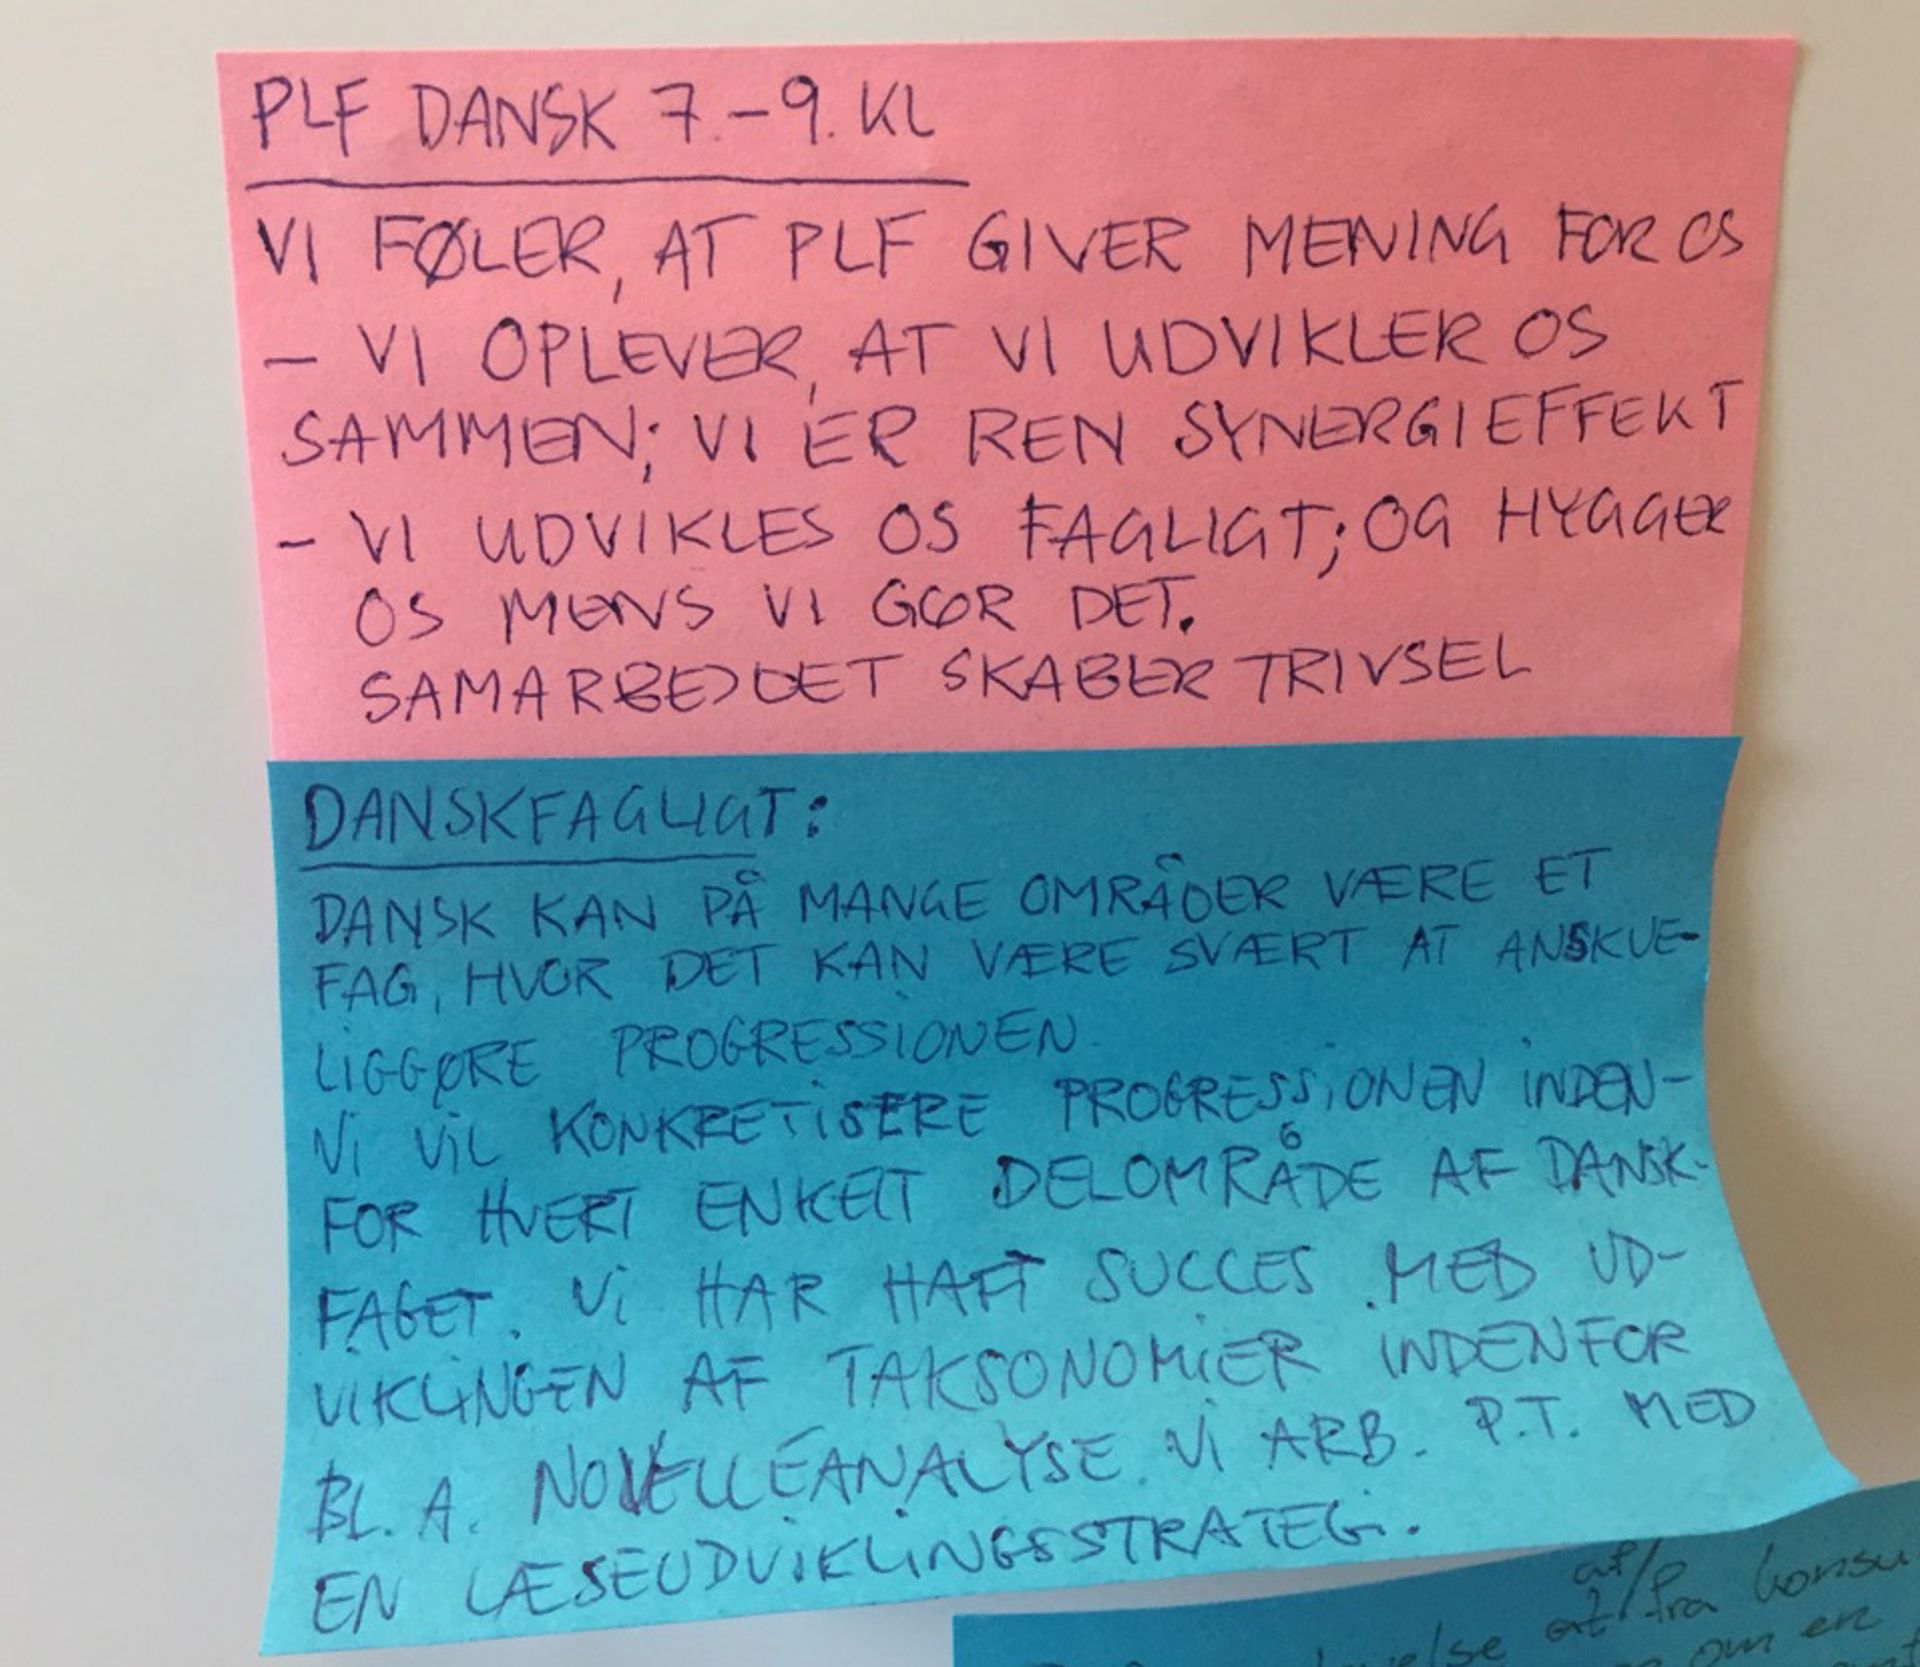 PLF DANSK 7.-9. KL
VI FØLER, AT PLF GIVER MENING FOR OS
- VI OPLEVER, AT VI UDVIKLER OS
SAMMEN; VI ER REN SYNERGIEFFEKT
- VI UDVIKLES OS FAGLIGT; OG HYGGER
OS MENS VI GØR DET.
SAMARBEJDET SKABER TRIVSEL
DANSKFAGLIGT:
DANSK KAN PÅ MANGE OMRÅDER VÆRE ET
FAG, HVOR DET KAN VÆRE SVÆRT AT ANSKUE-
LIGGØRE PROGRESSIONEN.
Vi ViL KONKRETiSERE PROGRESSiONEN iNDEN-
FOR HVERT ENKELT DELOMRÅDE AF DANSK-
FAGET. Vi HAR HAFT SUCCES MED UD-
VIKLINGEN AF TAKSONOMiER INDENFOR
BL. A. NOVELLEANALYSE. Vi ARB. P.T. MED
EN LÆSEUDViKLiNGSSTRATEGi.
af/
at/fra konsu
else
om en